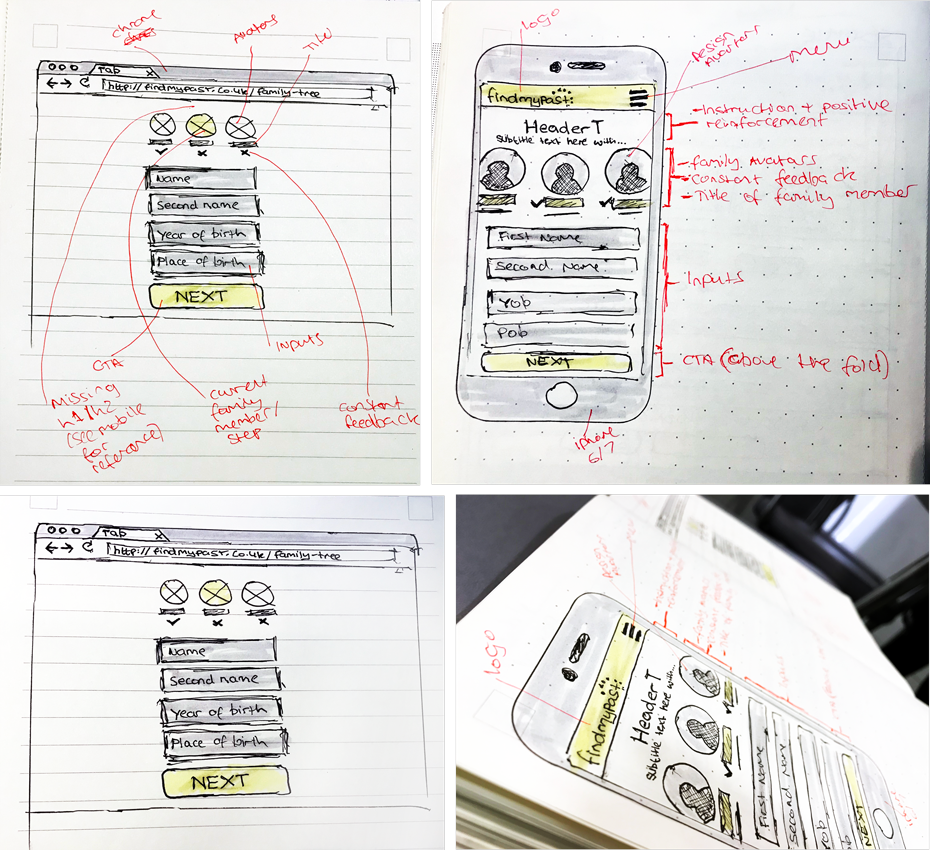 chrome
Avatars
Title
Tab
http://findmypast.co.uk/family-tree
Name
Second name
Year of birth
Place of birth
NEXT
CTA
INPUTS
Missing
h1/h2
(see mobile
for
reference)
current
family
member/
step
constant
feedback
logo
Design
Avatars
menu
findmypast:
HeaderT
Subtitle text here with...
First Name
Second Name
Yob
Pob
NEXT
iphone
6/7
-Instruction + positive
reinforcement
-family Avatars
-Constant feedback
-Title of family member
-Inputs
-CTA (above the fold)
Tab
http://findmypast.co.uk/family-tree
Name
Second name
Year of birth
Place of birth
NEXT
logo
findmypast:
HeaderT
Subtitle text here with...
First Name
Second Name
Yob
NEXT